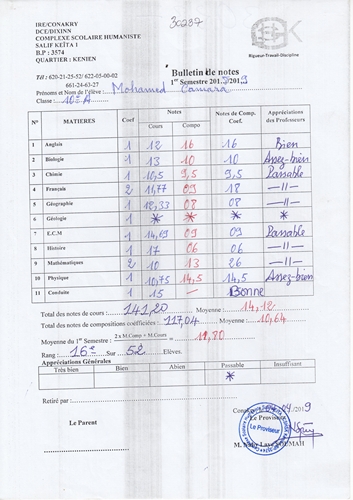 IRE/CONAKRY
DCE/DIXINN
COMPLEXE SCOLAIRE HUMANISTE
SALIF KEÏTA 1
B.P : 3574
QUARTIER : KENIEN
30237
Rigueur-Travail-Discipline
Tél : 620-21-25-52/ 622-05-00-02
661-24-63-27
Bulletin de notes
1er Semestre
Prénoms et Nom de l'élève : Mohamed Camara
Classe : 10e A
N° MATIERES Coef Notes Notes de Comp. Coef. Appréciations des Professeurs
Cours Compo
1 Anglais 1 12 16 16 Bien
2 Biologie 1 13 10 10 Assez-bien
3 Chimie 1 10,5 9,5 9,5 Passable
4 Français 2 11,77 09 18 —11—
5 Géographie 1 12,33 08 08 —11—
6 Géologie * * * * *
7 E.C.M 1 14,69 09 09 Passable
8 Histoire 1 17 06 06 —11—
9 Mathématiques 2 10 13 26 —11—
10 Physique 1 10,75 14,5 14,5 Assez-bien
11 Conduite 1 15 — Bonne
Total des notes de cours : 141,20 Moyenne : 14,12
Total des notes de compositions coéfficiées : 117,04 Moyenne : 10,64
Moyenne du 1er Semestre : 2 x M.Comp + M.Cours = 11,80
3
Rang : 16e Sur 52 Elèves.
Appréciations Générales
Très bien Bien Abien Passable Insuffisant
*
Retiré par :
Le Parent
Le Proviseur
Le Proviseur